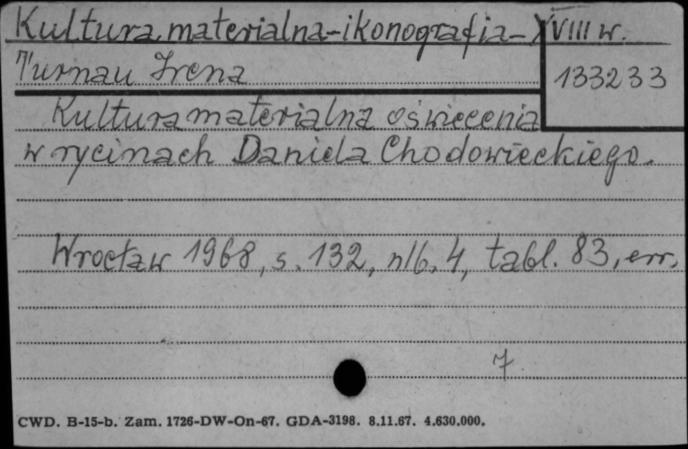 Kultura materialna-ikonografia-XVIII w.
Turnau Irena
133233
Kultura materialna oświecenia
w rycinach Daniela Chodowieckiego.
Wrocław 1968, s. 132, nlb. 4, tabl. 83, err.
7
CWD. B-15-b. Zam. 1726-DW-On-67. GDA-3198. 8.11.67. 4.630.000.